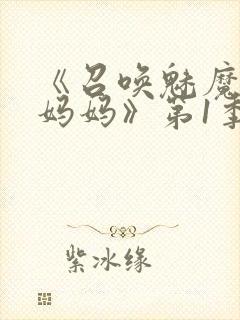 《召唤魅魔
妈妈》第1季
紫冰缘